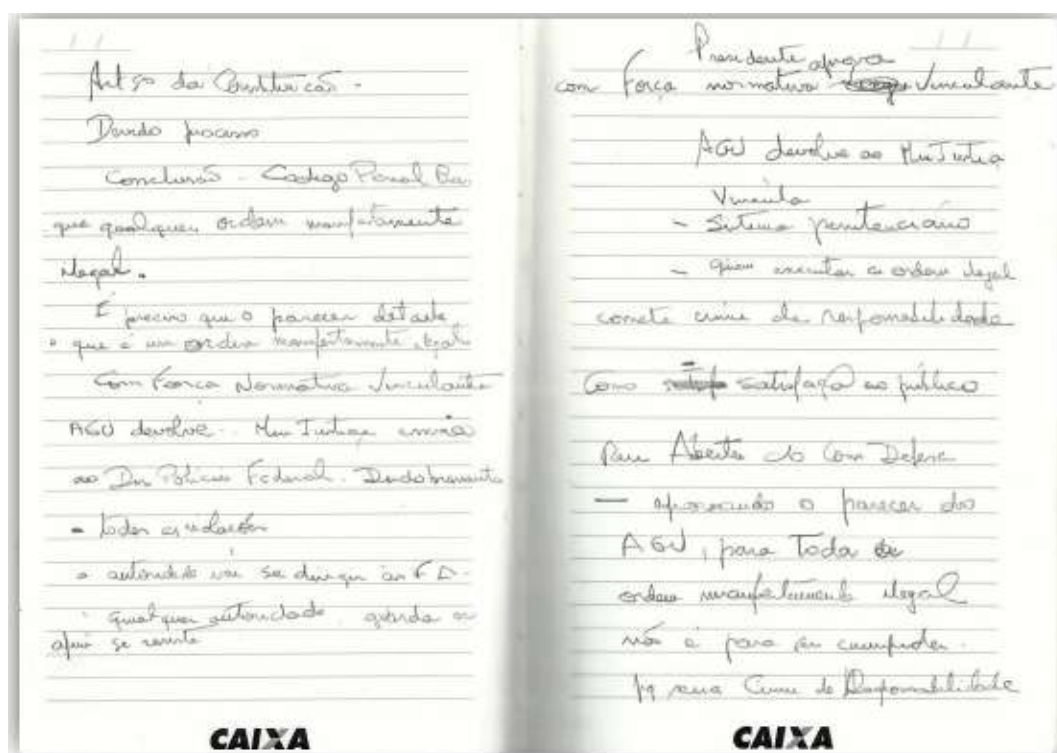 Artgo da Constituição -
Devido processo
Conclusão - Codigo Penal Bra.
que qualquer ordem manifestamente
ilegal.
É preciso que o parecer detalhe
o que é um ordem manifestamente ilegal
Com Força Normativa Vinculante
AGU devolve Min Justiça envia
ao Dir Polícia Federal. Desdobramento
- todas
autoridade vai se dirigir
qualquer autoridade
CAIXA
Presidente aprova
com Força normativa Vinculante
AGU devolve ao Min Justiça
Vincula
- Sistema penitenciário
- quem executar a ordem ilegal
comete crime de responsabilidade
Como satisfação ao público
Reun Abertura do Com Defesa
- aprovando o parecer do
AGU, para toda
ordem manifestamente ilegal
não é para ser cumprida.
pq seria Crime de Responsabilidade
CAIXA